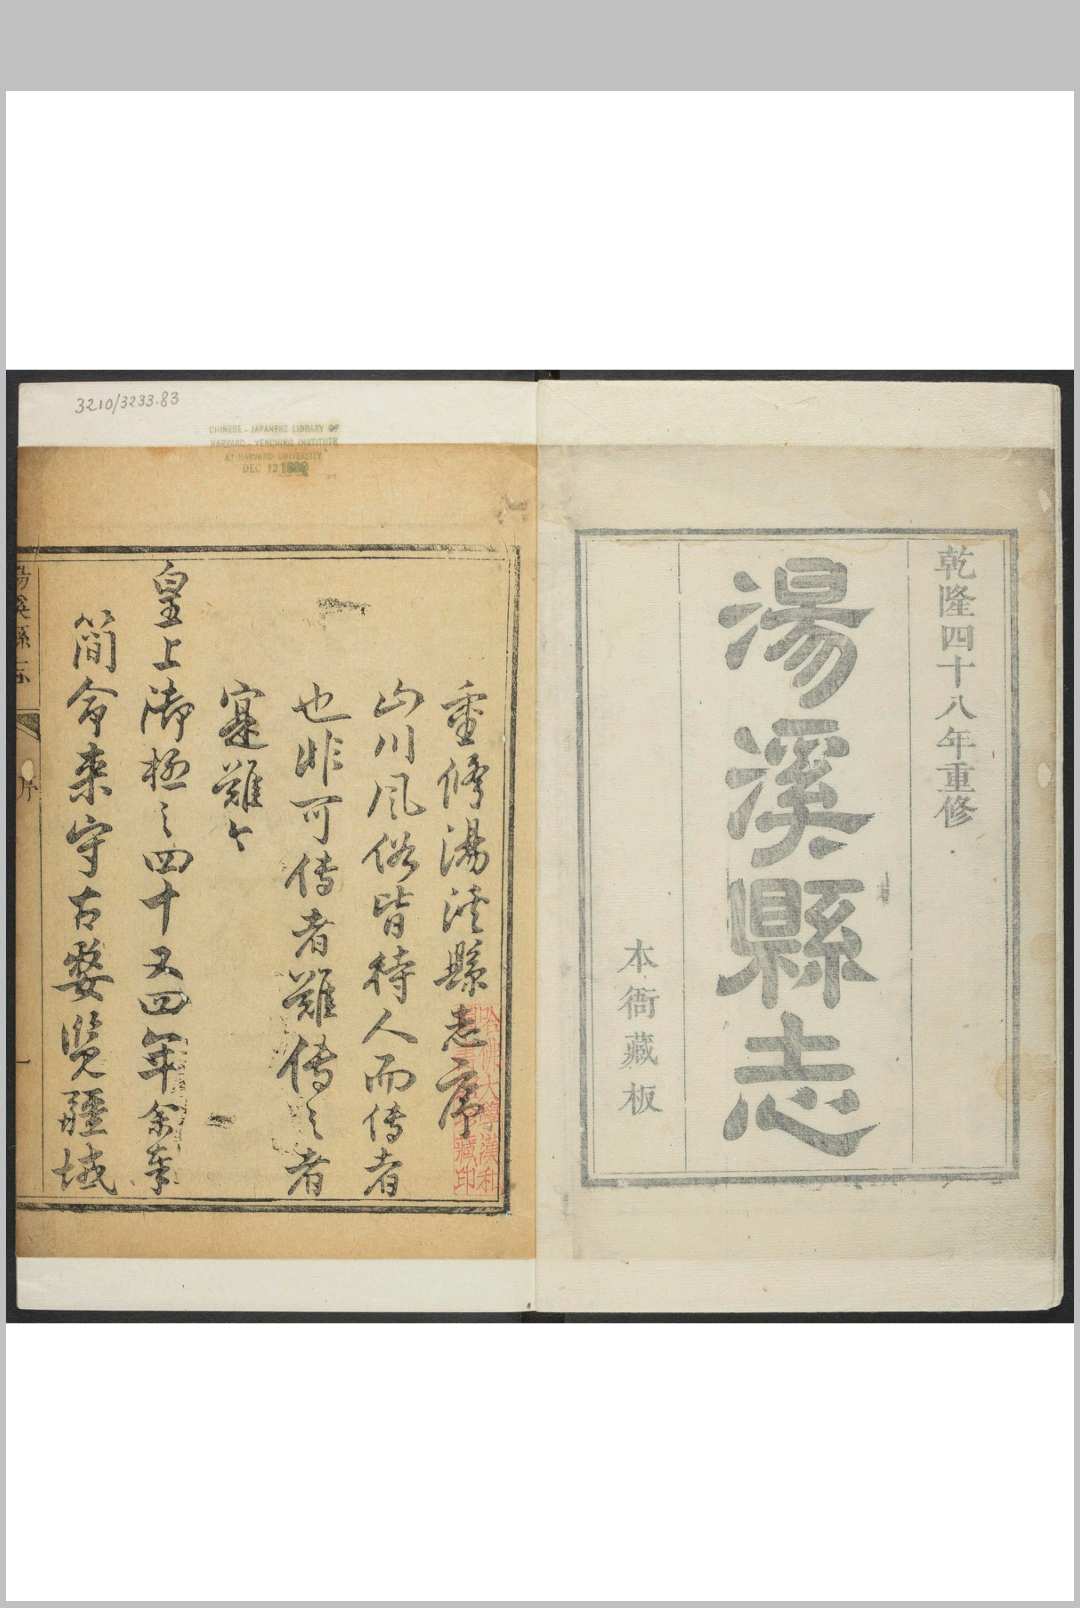 乾隆四十八年重修
湯溪縣志
本衙藏板
3210/3233.83
CHINESE - JAPANESE LIBRARY OF
HARVARD - YENCHING INSTITUTE
AT HARVARD UNIVERSITY
DEC 12
重修湯溪縣志序
山川風俗皆待人而傳者
也非可傳者難傳之者
寔難今
皇上御極之四十又四年余奉
簡命來守古婺覽疆域
哈佛大學漢和
藏印
湯溪縣志
序
一